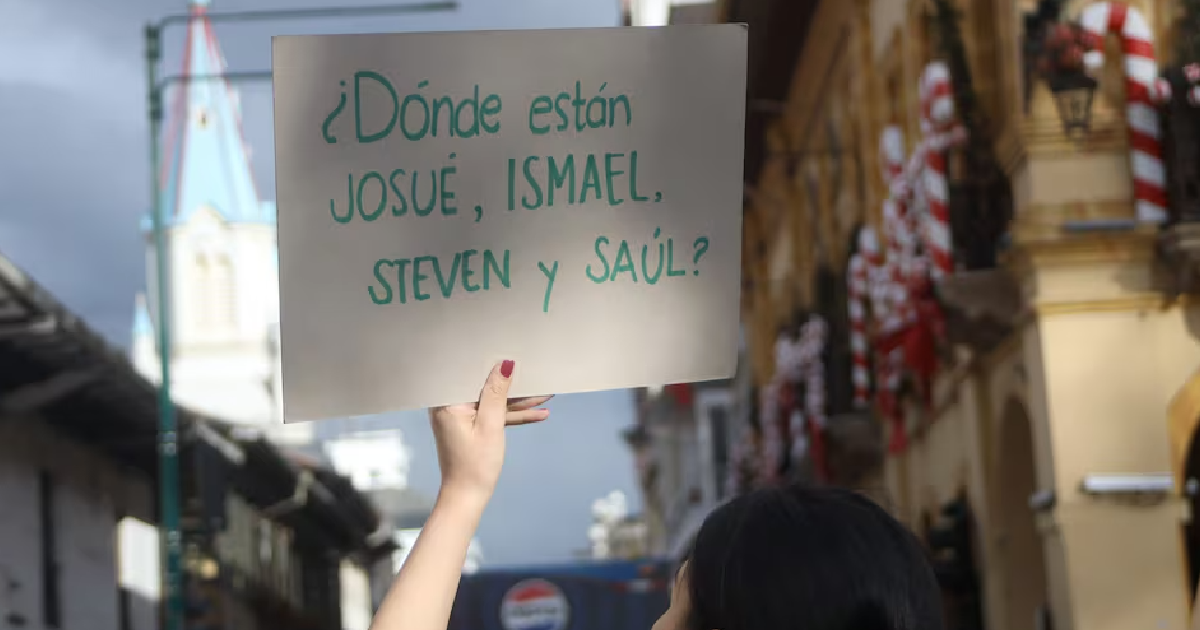 ¿Dónde están
JOSUÉ, ISMAEL,
STEVEN y SAÚL?